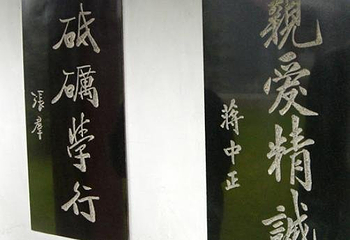 親愛精誠
蔣中正
砥礪學行
張羣